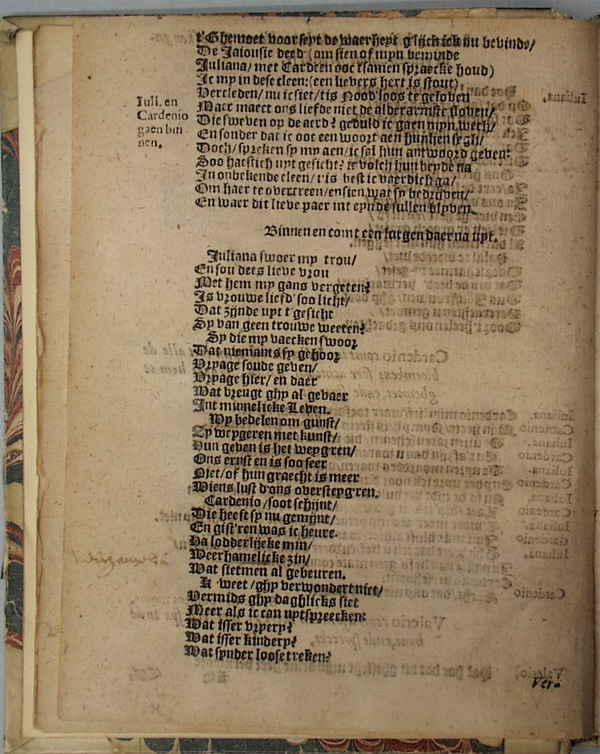 t'Ghemoet voorseyt de waerheyt g'lijck ick nu bevinde/
De Jalousie deed (om sien of mijn beminde
Juliana/ met Cardeen ooc t'samen spraecke houd)
Ic my in dese cleen: (een lievers hert is stout)
Vercleden/ nu ic siet/ tis Nood'loos te geloven
Maer maect ons liefde niet de alderarmste sloven/
Die sweven op de aerd? geduld ic gaen mijn wech/
En sonder dat ic ooc een woort aen hunhen segh/
Doch/ spreken sy my aen/ ic sal hun antwoord geven:
Juli. en
Cardenio
gaen bin
nen.
Soo haestich uyt gesicht? ic volch hun beyde na
In onbekende cleen/ t'is best ic vaerdich ga/
Om haer te overtreen/ en sien wat sy bedrijven/
En waer dit lieve paer int eynde sullen blyven.
Binnen en comt een lutgen daer na uyt.
Juliana swoer my trou/
En sou dees lieve vrou
Met hem my gans vergeten?
Is vrouwe liefd' soo licht/
Dat zijnde uyt t'gesicht
Sy van geen trouwe weeten?
Sy die my vaecken swoor
Dat niemants sy gehoor
Vryage soude geven/
Vryage hier/ en daer
Wat vreugt ghy al gebaer
Int minnelicke Leven.
Wy bedelen om gunst/
Zy weygeren met kunst/
Hun geven is het weyg'ren/
Ons ernst en is soo seer
Niet/ of hun graecht is meer
Wiens lust d'ons oversteyg'ren.
Cardenio/ soot schijnt/
Die heest sy nu gemijnt/
En gist'ren was ic heure.
Ha lodderlijcke min/
Weerhamelicke zin/
Wat sietmen al gebeuren.
Ik weet/ ghy verwondert niet/
Vermids ghy daghlicks siet
Meer als ic can uytspreecken:
Wat isser vryery?
Wat isser kindery?
Wat synder loose treken?
Ver-